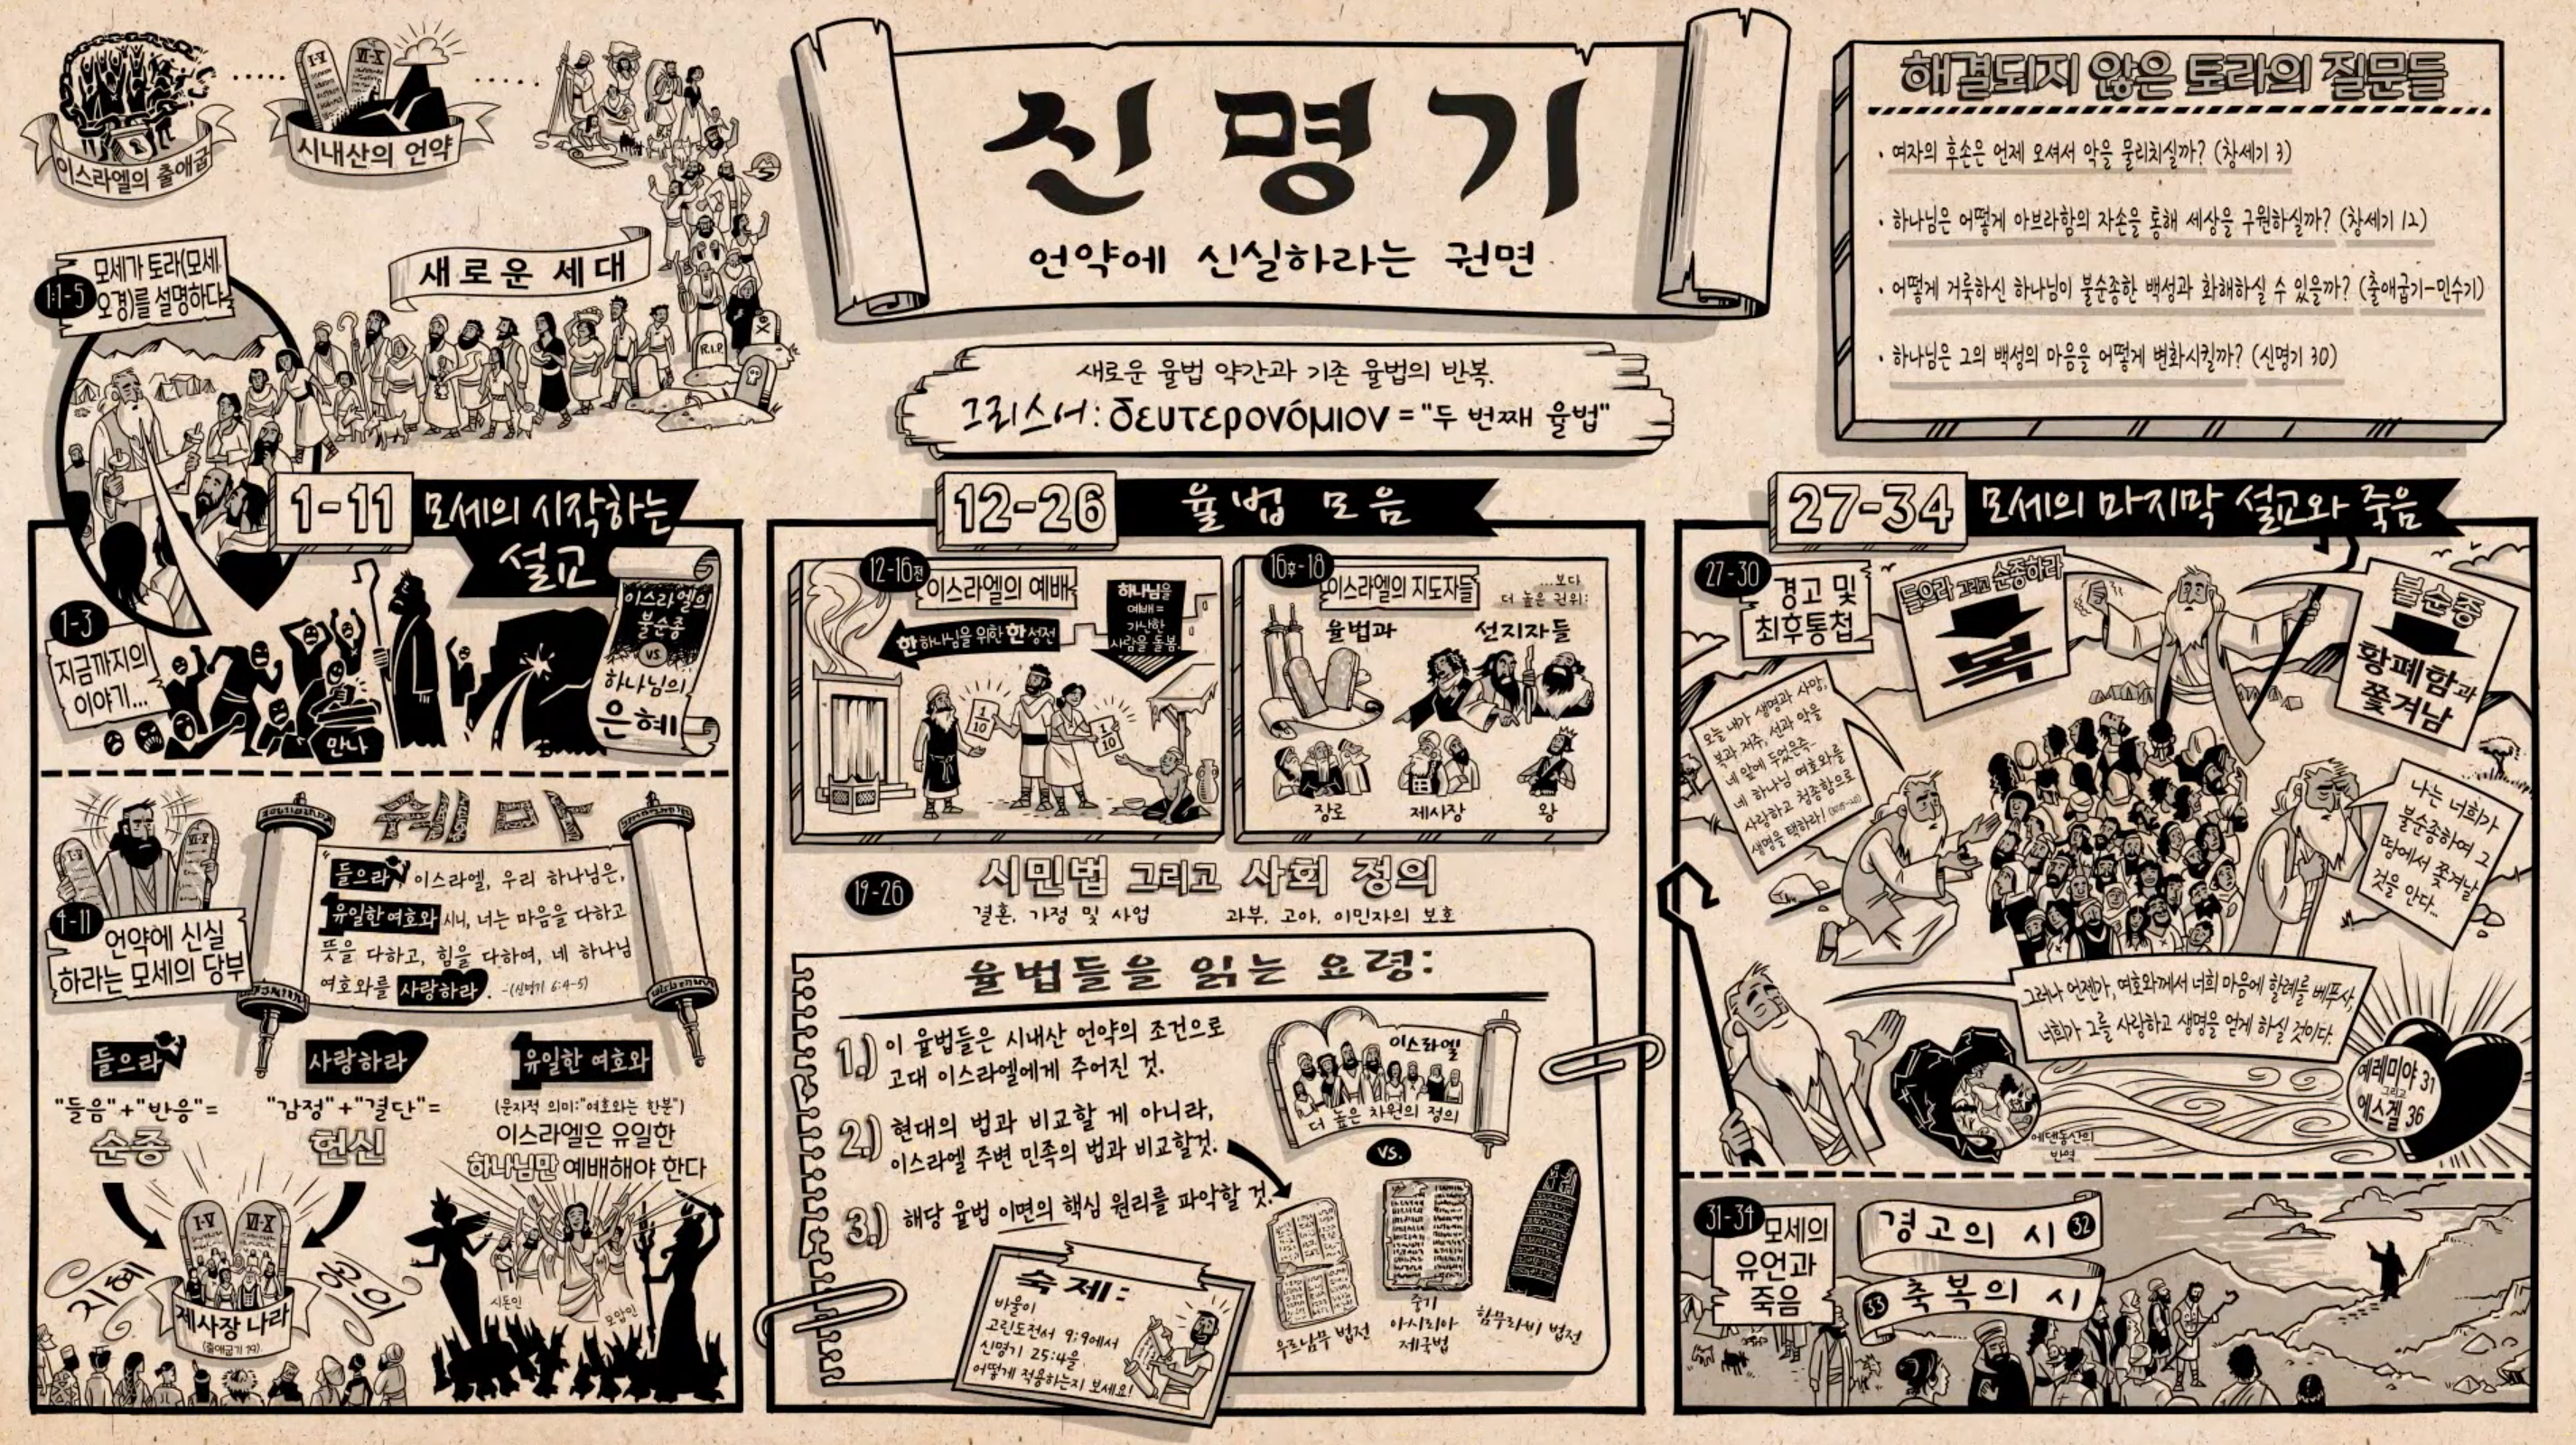 이스라엘의 출애굽
시내산의 언약
새로운 세대
R.I.P.
1:1-5
모세가 토라(모세
오경)를 설명하다
신명기
언약에 신실하라는 권면
새로운 율법 약간과 기존 율법의 반복.
그리스어: δευτερονόμιον = "두 번째 율법"
해결되지 않은 토라의 질문들
· 여자의 후손은 언제 오셔서 악을 물리치실까? (창세기 3)
· 하나님은 어떻게 아브라함의 자손을 통해 세상을 구원하실까? (창세기 12)
· 어떻게 거룩하신 하나님이 불순종한 백성과 화해하실 수 있을까? (출애굽기-민수기)
· 하나님은 그의 백성의 마음을 어떻게 변화시킬까? (신명기 30)
1-11 모세의 시작하는
설교
1-3
지금까지의
이야기...
만나
이스라엘의
불순종
vs
하나님의
은혜
4-11
언약에 신실
하라는 모세의 당부
I-V
VI-X
쉐마
"들으라, 이스라엘, 우리 하나님은,
유일한 여호와시니, 너는 마음을 다하고
뜻을 다하고, 힘을 다하여, 네 하나님
여호와를 사랑하라. -(신명기 6:4-5)
들으라
"들음"+"반응"=
순종
사랑하라
"감정"+"결단"=
헌신
유일한 여호와
(문자적 의미:"여호와는 한분")
이스라엘은 유일한
하나님만 예배해야 한다
I-V
VI-X
지혜
공의
제사장 나라
(출애굽기 19)
시돈인
모압인
12-26 율법 모음
12-16전
이스라엘의 예배
한 하나님을 위한 한 성전
하나님을
예배=
가난한
사람을 돌봄
1/10
1/10
16후-18
이스라엘의 지도자들
...보다
더 높은 권위:
율법과
선지자들
장로
제사장
왕
19-26
시민법 그리고 사회 정의
결혼, 가정 및 사업
과부, 고아, 이민자의 보호
율법들을 읽는 요령:
1.) 이 율법들은 시내산 언약의 조건으로
고대 이스라엘에게 주어진 것.
2.) 현대의 법과 비교할 게 아니라,
이스라엘 주변 민족의 법과 비교할것.
3.) 해당 율법 이면의 핵심 원리를 파악할 것.
이스라엘
더 높은 차원의 정의
vs.
우르남무 법전
중기
아시리아
제국법
함무라비 법전
숙제:
바울이
고린도전서 9:9에서
신명기 25:4을
어떻게 적용하는지 보세요!
27-34 모세의 마지막 설교와 죽음
27-30
경고 및
최후통첩
들으라 그리고 순종하라
복
불순종
황폐함과
쫓겨남
오늘 내가 생명과 사망,
복과 저주, 선과 악을
네 앞에 두었은즉..
네 하나님 여호와를
사랑하고 청종함으로
생명을 택하라!
나는 너희가
불순종하여 그
땅에서 쫓겨날
것을 안다...
그러나 언젠가, 여호와께서 너희 마음에 할례를 베푸사,
너희가 그를 사랑하고 생명을 얻게 하실 것이다.
에덴동산의
반역
예레미야 31
그리고
에스겔 36
31-34
모세의
유언과
죽음
경고의 시 32
33 축복의 시